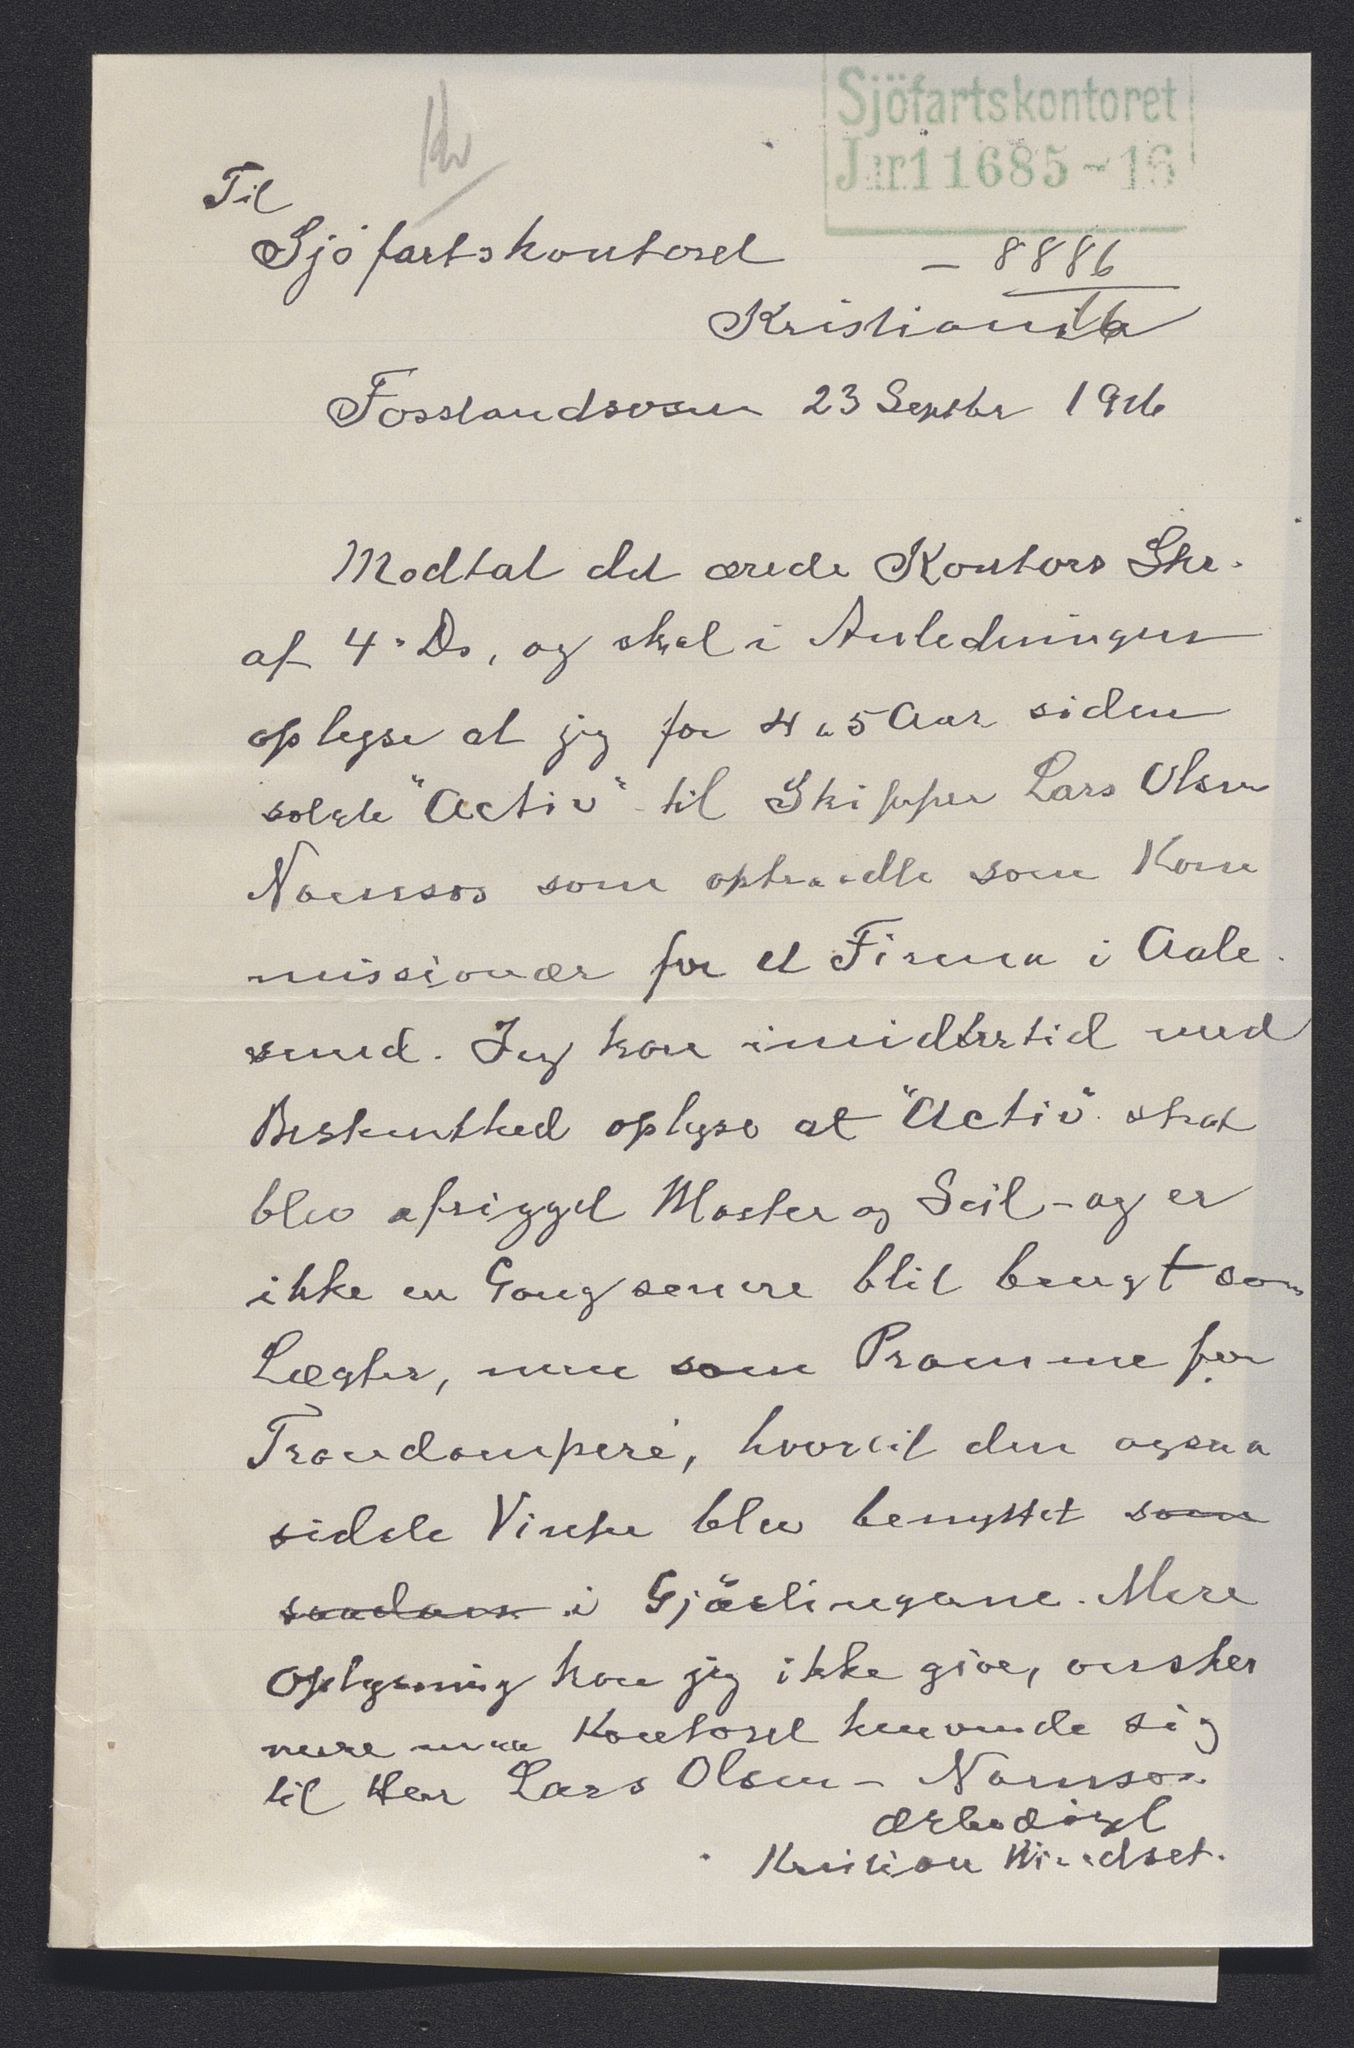 Sjöfartskontoret
Jnr11685-16
Til
Sjöfartskontoret
- 8886
16
Kristiania
Fosslandsosen 23 Septbr 1916
Modtat det ærede Kontors Skr.
af 4. Ds, og skal i Anledningen
oplyse at jeg for 4 a 5 Aar siden
solgte "Activ" til Skipper Lars Olsen
Namsos som optraadte som Kom
missionær for et Firma i Aale-
sund. Jeg kan imidlertid med
Bestemthed oplyse at "Activ" strax
blev afrigget Master og Seil - og er
ikke en Gang senere blit brugt som
Lægter, men som Pramme for
Trandamperi, hvortil den ogsaa
sidste Vinter blev benyttet som
saadan i Gjæslingerne. Mere
Oplysning kan jeg ikke give, ønskes
mere maa Kontoret henvende sig
til Herr Lars Olsen - Namsos.
Ærbødigst
Kristian